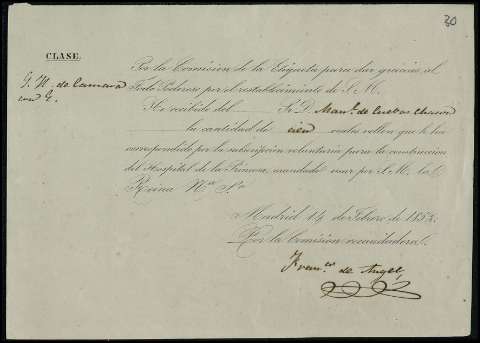 30
CLASE.
G. H. de Camara
con E.
Por la Comision de la Etiqueta para dar gracias al
Todo Poderoso por el restablecimiento de S. M.
He recibido del Sr. D. Man.l de Cuebas Chacon
la cantidad de cien reales vellon que le ha
correspondido por la subscripcion voluntaria para la construccion
del Hospital de la Princesa, mandado crear por S. M. la
Reina N.ra S.ra
Madrid 14 de Febrero de 1853.
Por la Comision recaudadora.
Fran.co de Angel